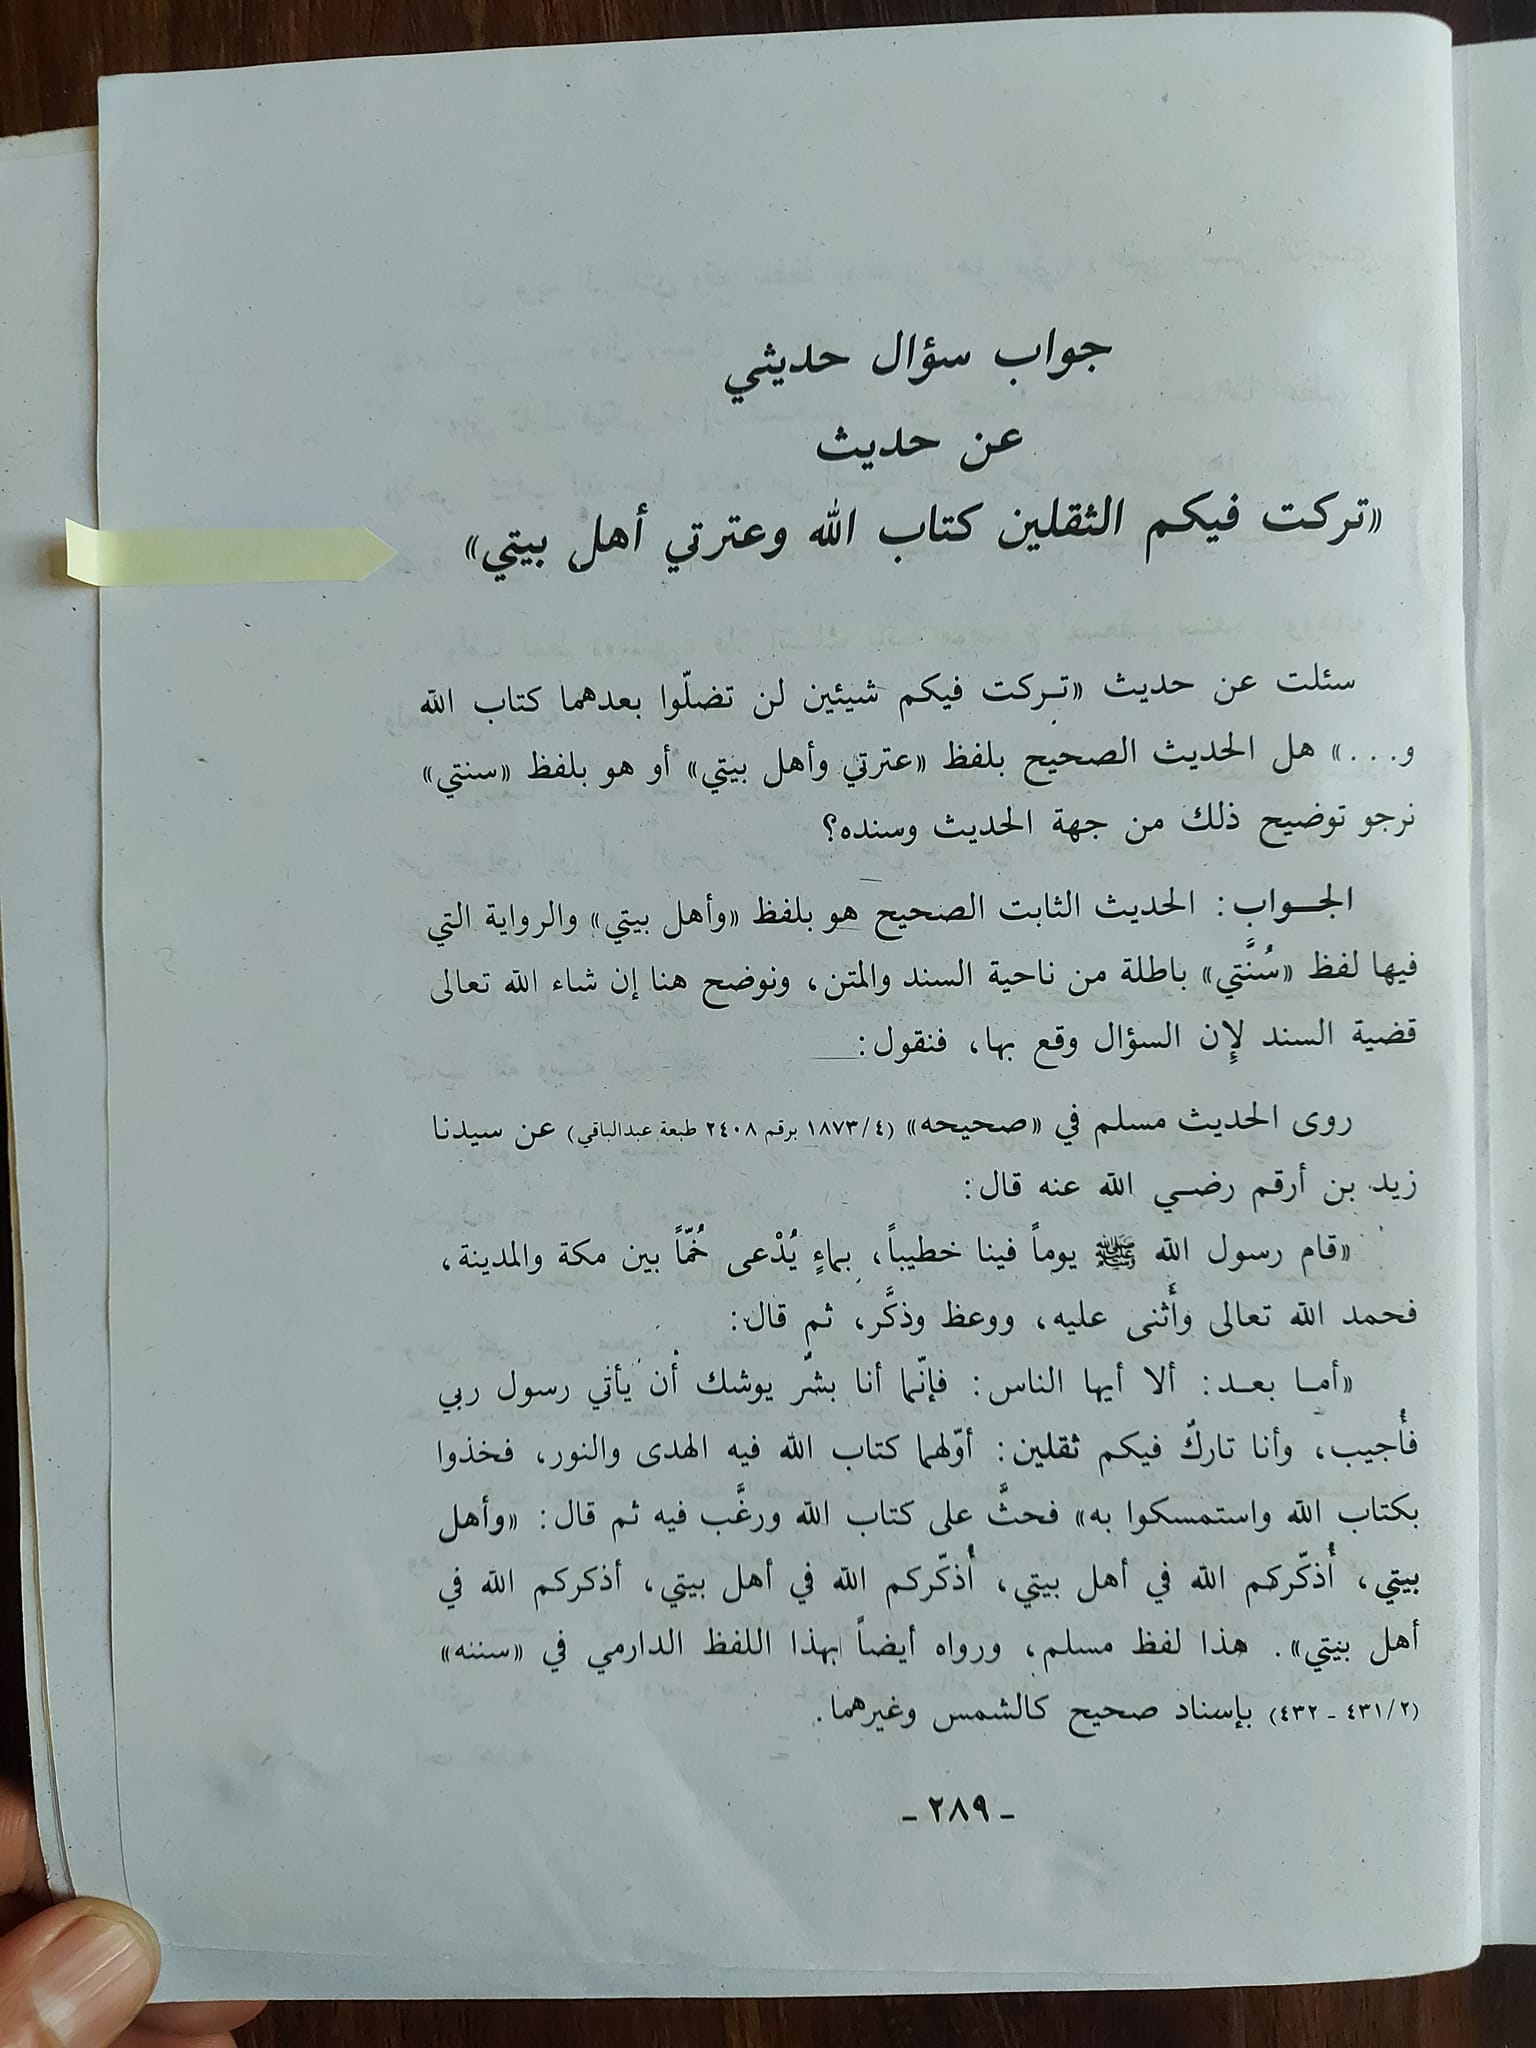 جواب سؤال حديثي
عن حديث
«تركت فيكم الثقلين كتاب الله وعترتي أهل بيتي»
سئلت عن حديث «تـركت فيكم شيئين لن تضلّوا بعدهما كتاب الله
و...» هل الحديث الصحيح بلفظ «عترتي وأهل بيتي» أو هو بلفظ «سنتي»
نرجو توضيح ذلك من جهة الحديث وسنده؟
الجـــواب: الحديث الثابت الصحيح هو بلفظ «وأهل بيتي» والرواية التي
فيها لفظ «سُنَّتي» باطلة من ناحية السند والمتن، ونوضح هنا إن شاء الله تعالى
قضية السند لإِن السؤال وقع بها، فنقول:
روى الحديث مسلم في «صحيحه» (٤/١٨٧٣ برقم ٢٤٠٨ طبعة عبدالباقي) عن سيدنا
زيد بن أرقم رضـي الله عنه قال:
«قام رسول الله ﷺ يوماً فينا خطيباً، بماءٍ يُدْعى خُمّاً بين مكة والمدينة،
فحمد الله تعالى وأَثنى عليه، ووعظ وذكَّر، ثم قال:
«أمـا بعـد: ألا أيها الناس: فإنّما أنا بشرٌ يوشك أن يأتي رسول ربي
فأُجيب، وأنا تاركٌ فيكم ثقلين: أوّلهما كتاب الله فيه الهدى والنور، فخذوا
بكتاب الله واستمسكوا به» فحثَّ على كتاب الله ورغَّب فيه ثم قال: «وأهل
بيتي، أُذكّركم الله في أهل بيتي، أُذكّركم الله في أهل بيتي، أذكركم الله في
أهل بيتي». هذا لفظ مسلم، ورواه أيضاً بهذا اللفظ الدارمي في «سننه»
(٢/٤٣١ ـ ٤٣٢) بإسناد صحيح كالشمس وغيرهما.
ـ ٢٨٩ ـ